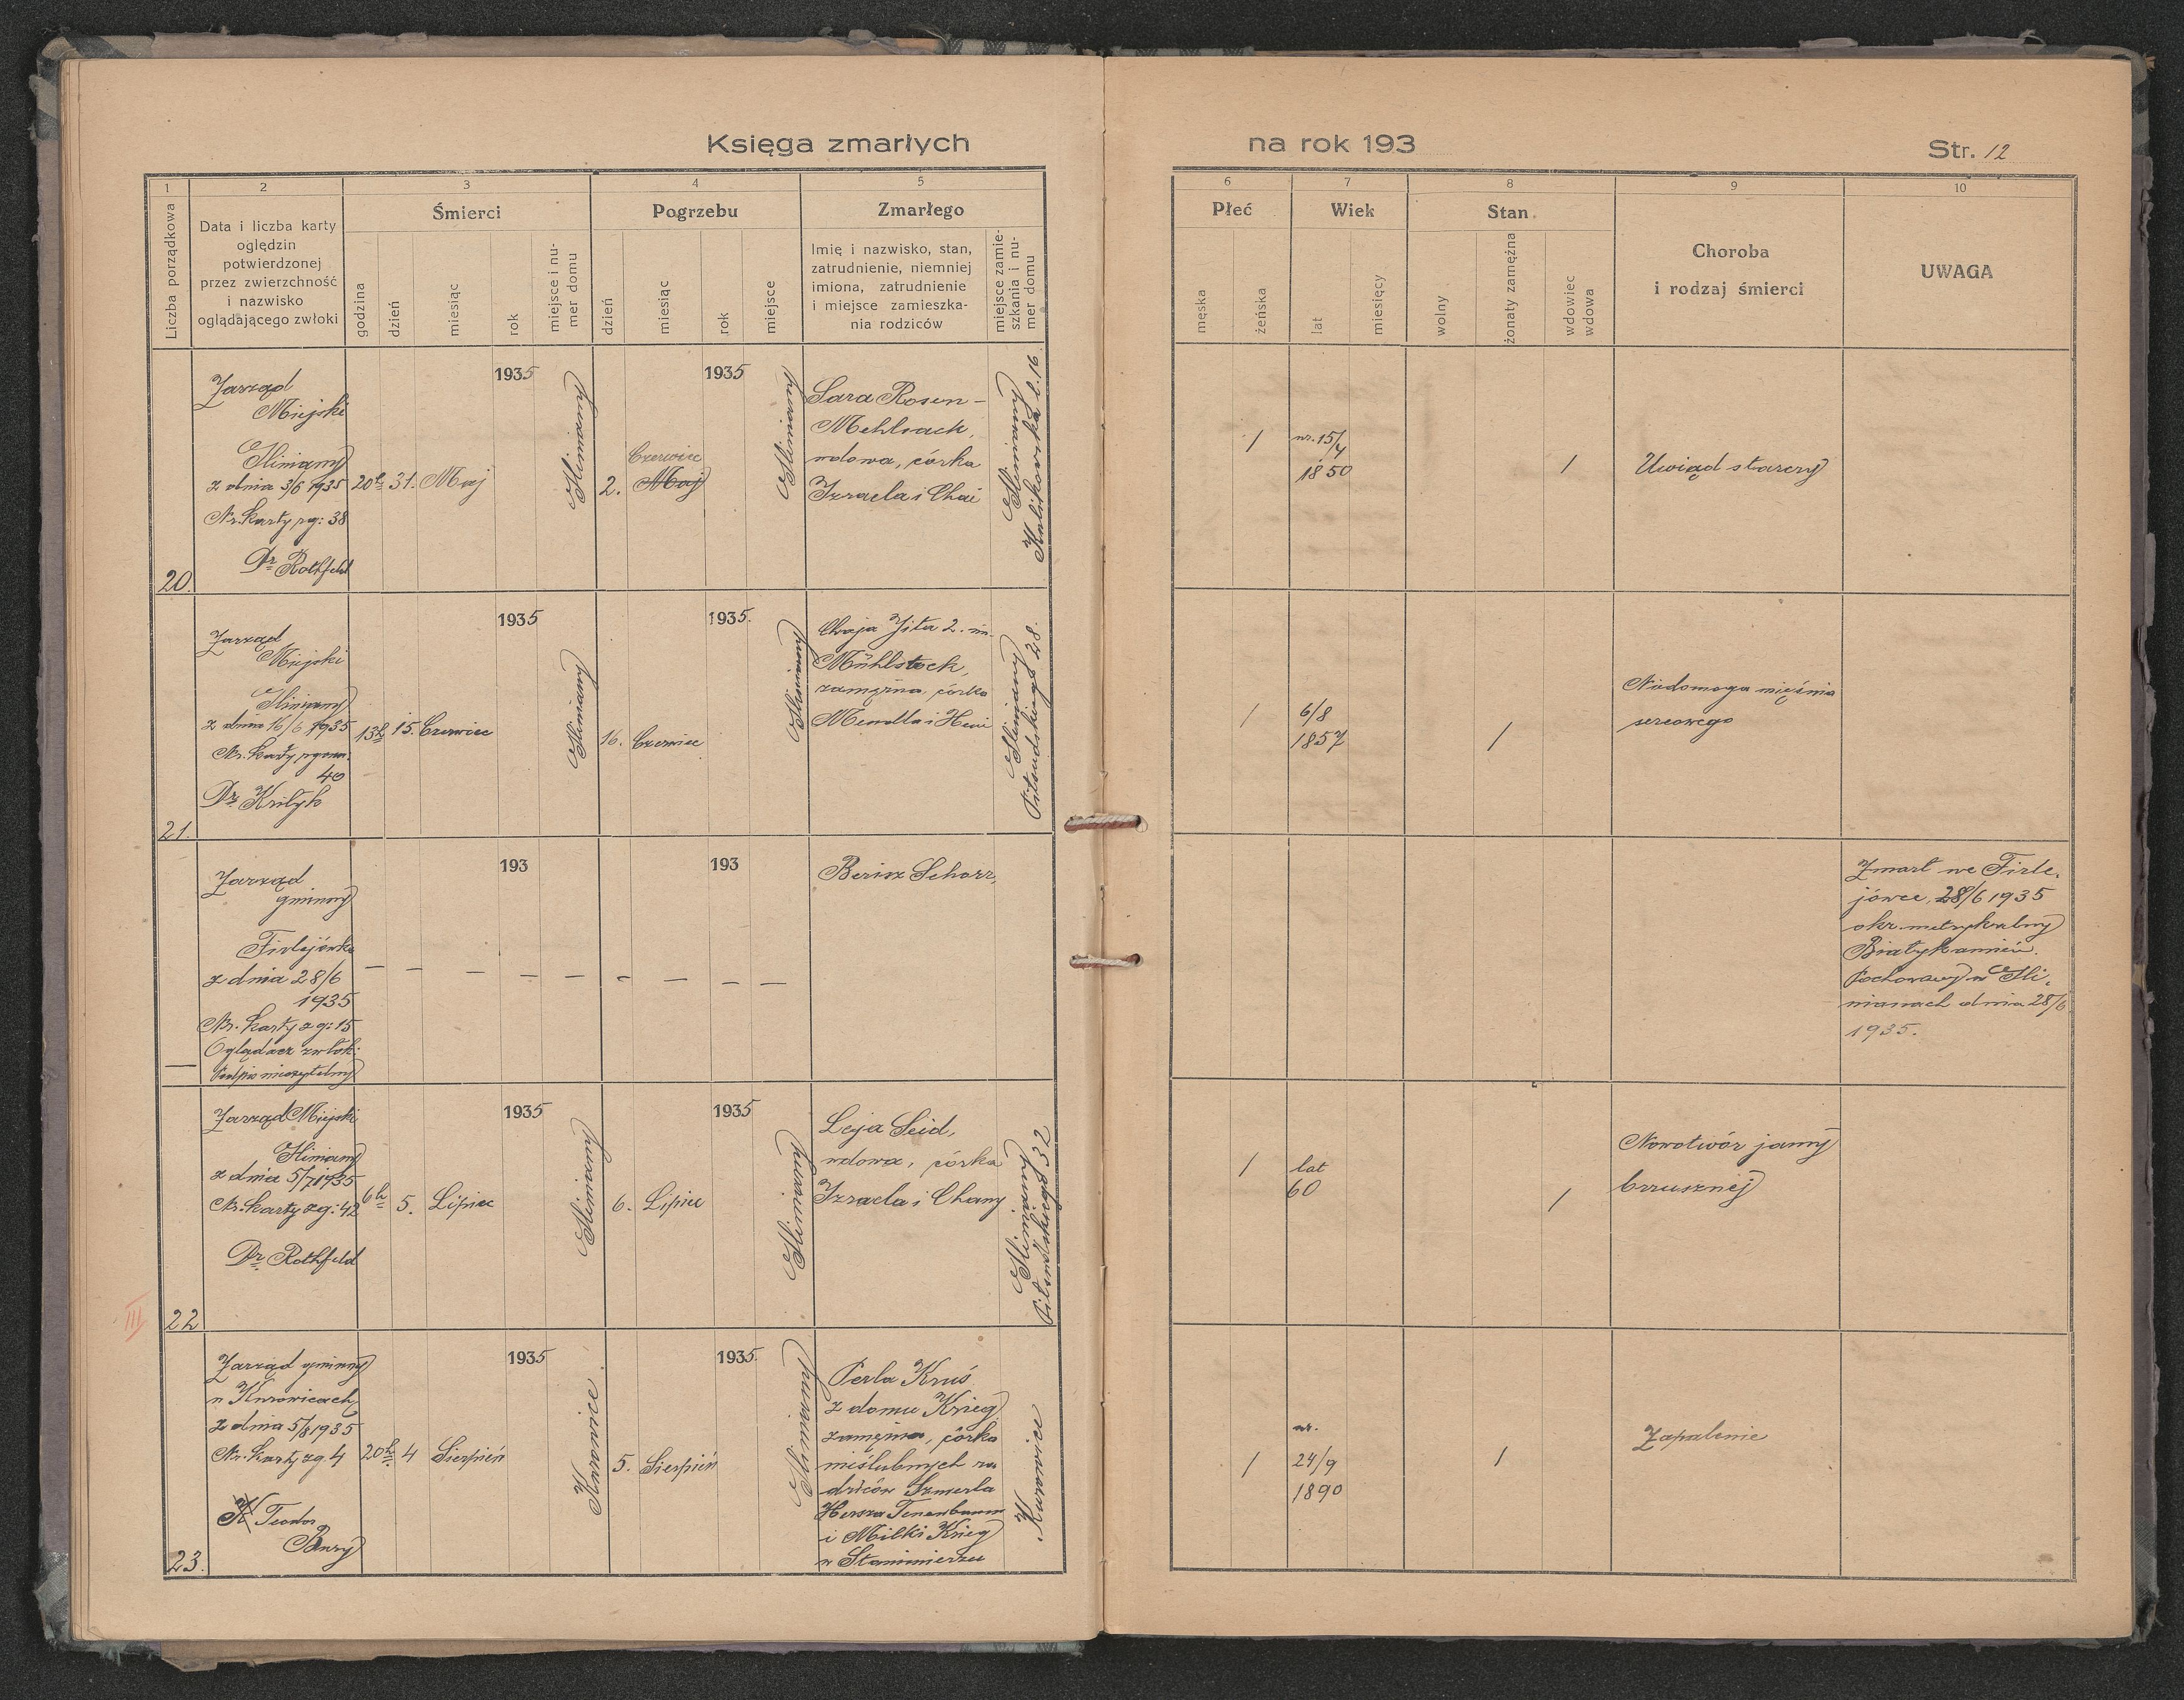 Księga zmarłych
na rok 193
Str. 12
1
2
3
4
5
6
7
8
9
10
Liczba porządkowa
Data i liczba karty
oględzin
potwierdzonej
przez zwierzchność
i nazwisko
oglądającego zwłoki
Śmierci
godzina
dzień
miesiąc
rok
miejsce i nu-
mer domu
Pogrzebu
dzień
miesiąc
rok
miejsce
Zmarłego
Imię i nazwisko, stan,
zatrudnienie, niemniej
imiona, zatrudnienie
i miejsce zamieszka-
nia rodziców
miejsce zamie-
szkania i nu-
mer domu
Płeć
męska
żeńska
Wiek
lat
miesięcy
Stan
wolny
żonaty zamężna
wdowiec
wdowa
Choroba
i rodzaj śmierci
UWAGA
20.
Zarząd
Miejski
Gliniany
z dnia 3/6 1935
Nr. karty zg: 38
Dr Rothfeld
20h
31.
Maj
1935
Gliniany
2.
Czerwiec
Maj
1935
Gliniany
Sara Rosen-
Mehlsack,
wdowa, córka
Izraela i Chai
Gliniany
l. 16.
/
ur. 15/4
1850
/
Uwiąd starczy
21.
Zarząd
Miejski
Gliniany
z dnia 16/6 1935
Nr. karty zgonu:
40
Dr
13h
15.
Czerwiec
1935
Gliniany
16.
Czerwiec
1935.
Gliniany
Chaja Jita 2. im.
Mühlstock,
zamężna, córka
Mendla i Heni
Gliniany
Piłsudskiego 28.
/
6/8
1857
/
Niedomoga mięśnia
sercowego
—
Zarząd
gminny
Firlejówka
z dnia 28/6
1935
Nr. karty zg: 15
Oglądacz zwłok:
Podpis nieczytelny
— — — — —
193
— — — —
193
Berisz Schorr,
Zmarł we Firle-
jówce, 28/6 1935
okr. metrykalny
Białykamień.
Pochowany w Gli-
nianach dnia 28/6
1935.
III
22
Zarząd Miejski
Gliniany
z dnia 5/7 1935
Nr. karty zg: 42
Dr Rothfeld
6h
5.
Lipiec
1935
Gliniany
6.
Lipiec
1935
Gliniany
Leja Seid,
wdowa, córka
Izraela i Chany
Gliniany
Piłsudskiego 32
/
lat
60
/
Nowotwór jamy
brzusznej
23.
Zarząd gminny
w Kurowicach
z dnia 5/8 1935
Nr. karty zg. 4
Teodor
20h
4
Sierpień
1935
Kurowice
5.
Sierpień
1935.
Gliniany
Perla Kruś
z domu Krieg
zamężna, córka
nieślubnych ro
dziców Szmerla
Hersza Tenenbaum
i Milki Krieg
w Stanimierzu
Kurowice
/
ur.
24/9
1890
/
Zapalenie